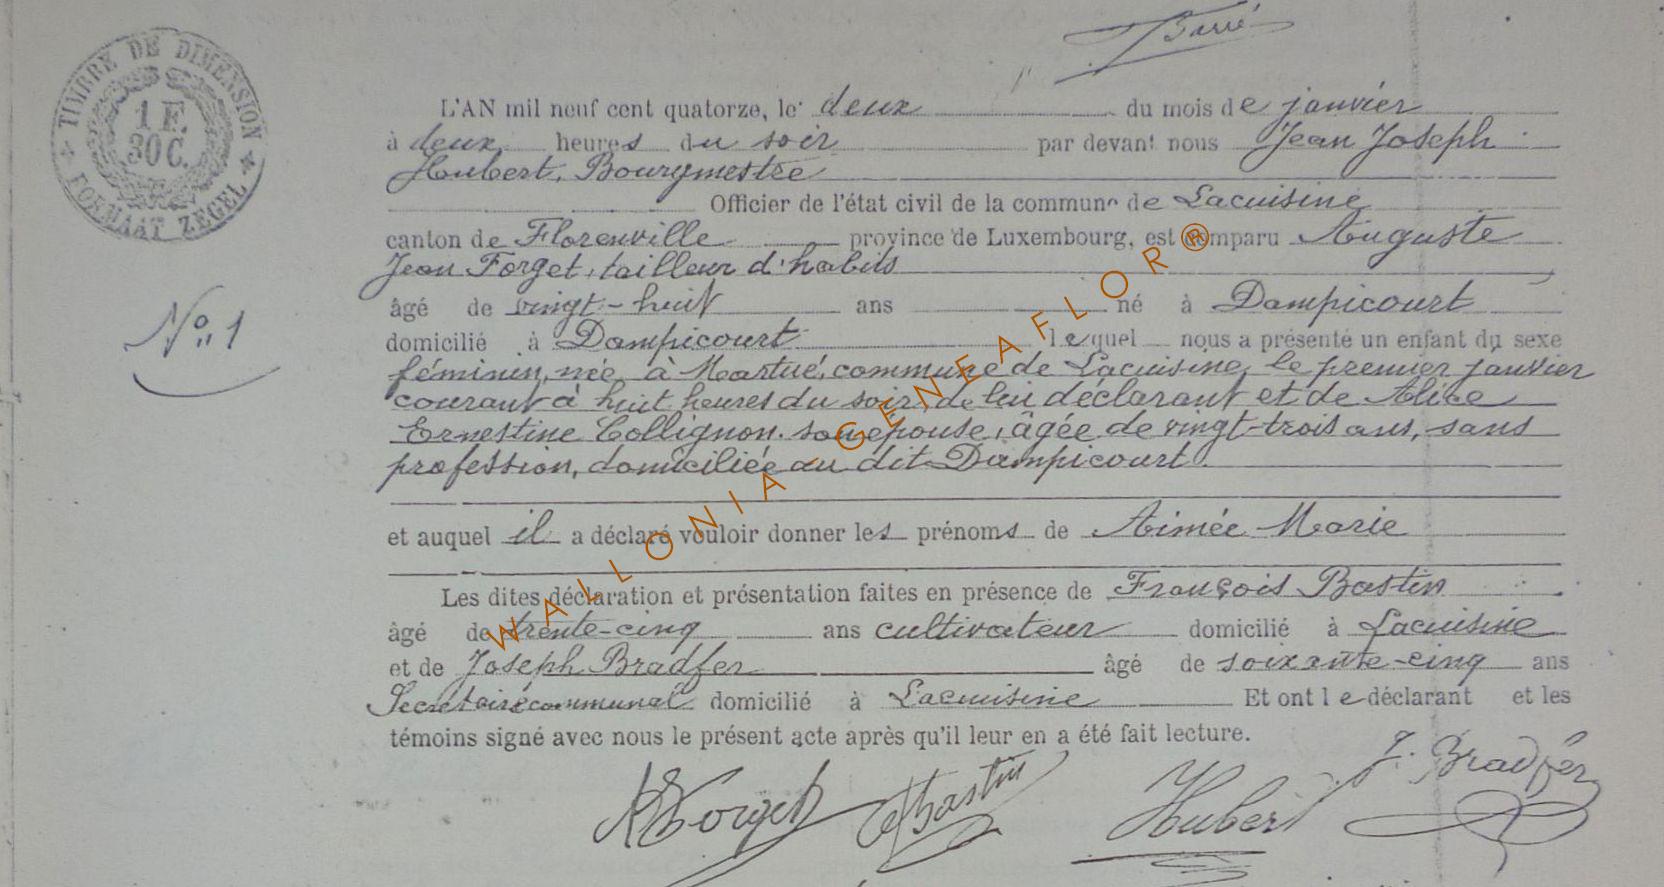 Barré
TIMBRE DE DIMENSION
1 F.
30 C.
FORMAAT ZEGEL
L'AN mil neuf cent quatorze, le deux du mois de janvier
à deux heures du soir par devant nous Jean Joseph
Hubert, Bourgmestre
Officier de l'état civil de la commune de Lacuisine
canton de Florenville province de Luxembourg, est comparu Auguste
Jean Forget, tailleur d'habits
âgé de vingt-huit ans né à Dampicourt
domicilié à Dampicourt lequel nous a présenté un enfant du sexe
N° 1
féminin, née à Martué, commune de Lacuisine, le premier janvier
courant à huit heures du soir, de lui déclarant et de Alice
Ernestine Collignon, son épouse, âgée de vingt-trois ans, sans
profession, domiciliée au dit Dampicourt.
et auquel il a déclaré vouloir donner les prénoms de Aimée Marie
Les dites déclaration et présentation faites en présence de François Bastin
âgé de trente-cinq ans cultivateur domicilié à Lacuisine
et de Joseph Bradfer âgé de soixante-cinq ans
Secrétaire communal domicilié à Lacuisine Et ont le déclarant et les
témoins signé avec nous le présent acte après qu'il leur en a été fait lecture.
Forget Bastin Hubert J. Bradfer
WALLONIA - GENEAFLOR®